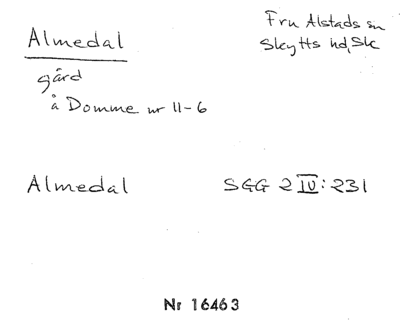 Almedal
Fru Alstads sn
Skytts hd, Sk
gård
å Domme nr 11-6
Almedal SGG 2 IV: 231
Nr 16463